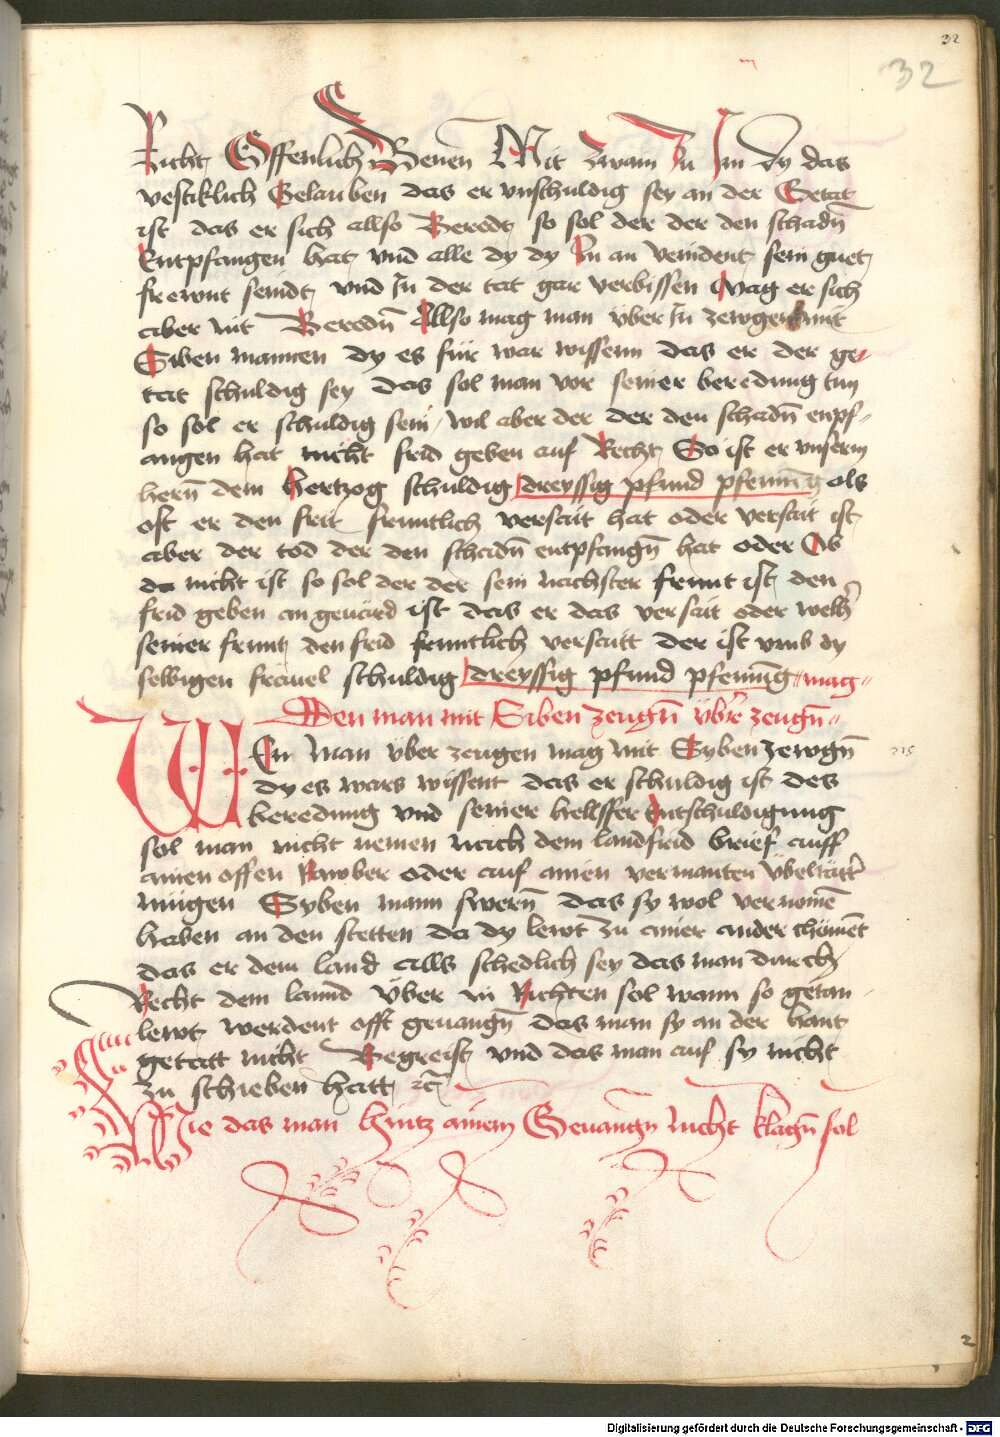 32
32
Richt Offenlich Benen Mit zwain zu Im dy das
vestiklich Gelauben das er vnschuldig sey an der Getat
ist das er sich allso Beredt so sol der der den schadn̄
Entpfangen hat vnd alle dy dy In an veindent sein guet
frewnt seindt vnd In der tat gar verbissen Mag er sich
aber nit Beredn̄ Allso mag man über In zewgen mit
Siben mannen dy es für war wissenn das er der ge-
tat schuldig sey das sol man vor seiner beredung tun
so sol er schuldig sein wil aber der der den schadn̄ enpf-
angen hat nicht frid geben auf Recht So ist er vnserm
hern̄ dem hertzog schuldig dreyssig pfund pfenning als
oft er den frit freuntlich versait hat oder versait ist
aber der tod der den schadn̄ entpfangn̄ hat oder Ob
da nicht ist so sol der der sein nachster freunt ist den
frid geben an geuärd ist das er das versait oder welh̄
seiner freunt den frid freuntlich versaitt der ist vmb dy
selbigen fräuel schuldig dreyssig pfund pfenning mag
Den man mit Siben zeugn̄ über zeugn̄
WEn man über zeugen mag mit Syben zewgn̄
215
dy es wars wissent das er schuldig ist des
beredung vnd seiner hellffer Entschuldigung
sol man nicht nemen nach dem landfrid brief auff
ainen offen Rawber oder auf ainen vermanten übeltätter
mügen Syben mann swern̄ das sy wol vernomē
haben an den stetten da dy lewt zu ainer ander chömēt
das er dem land alls schedlich sey das man durch
Recht dem lannd über in Richten sol wann so getan
lewt werdent offt geuangn̄ das man sy an der hant
getatt nicht Begreift vnd das man auf sy nicht
zu schieben hatt ꝛc̄
Wie das man hintz ainem Geuangn̄ nicht klagn̄ sol
2
Digitalisierung gefördert durch die Deutsche Forschungsgemeinschaft - DFG